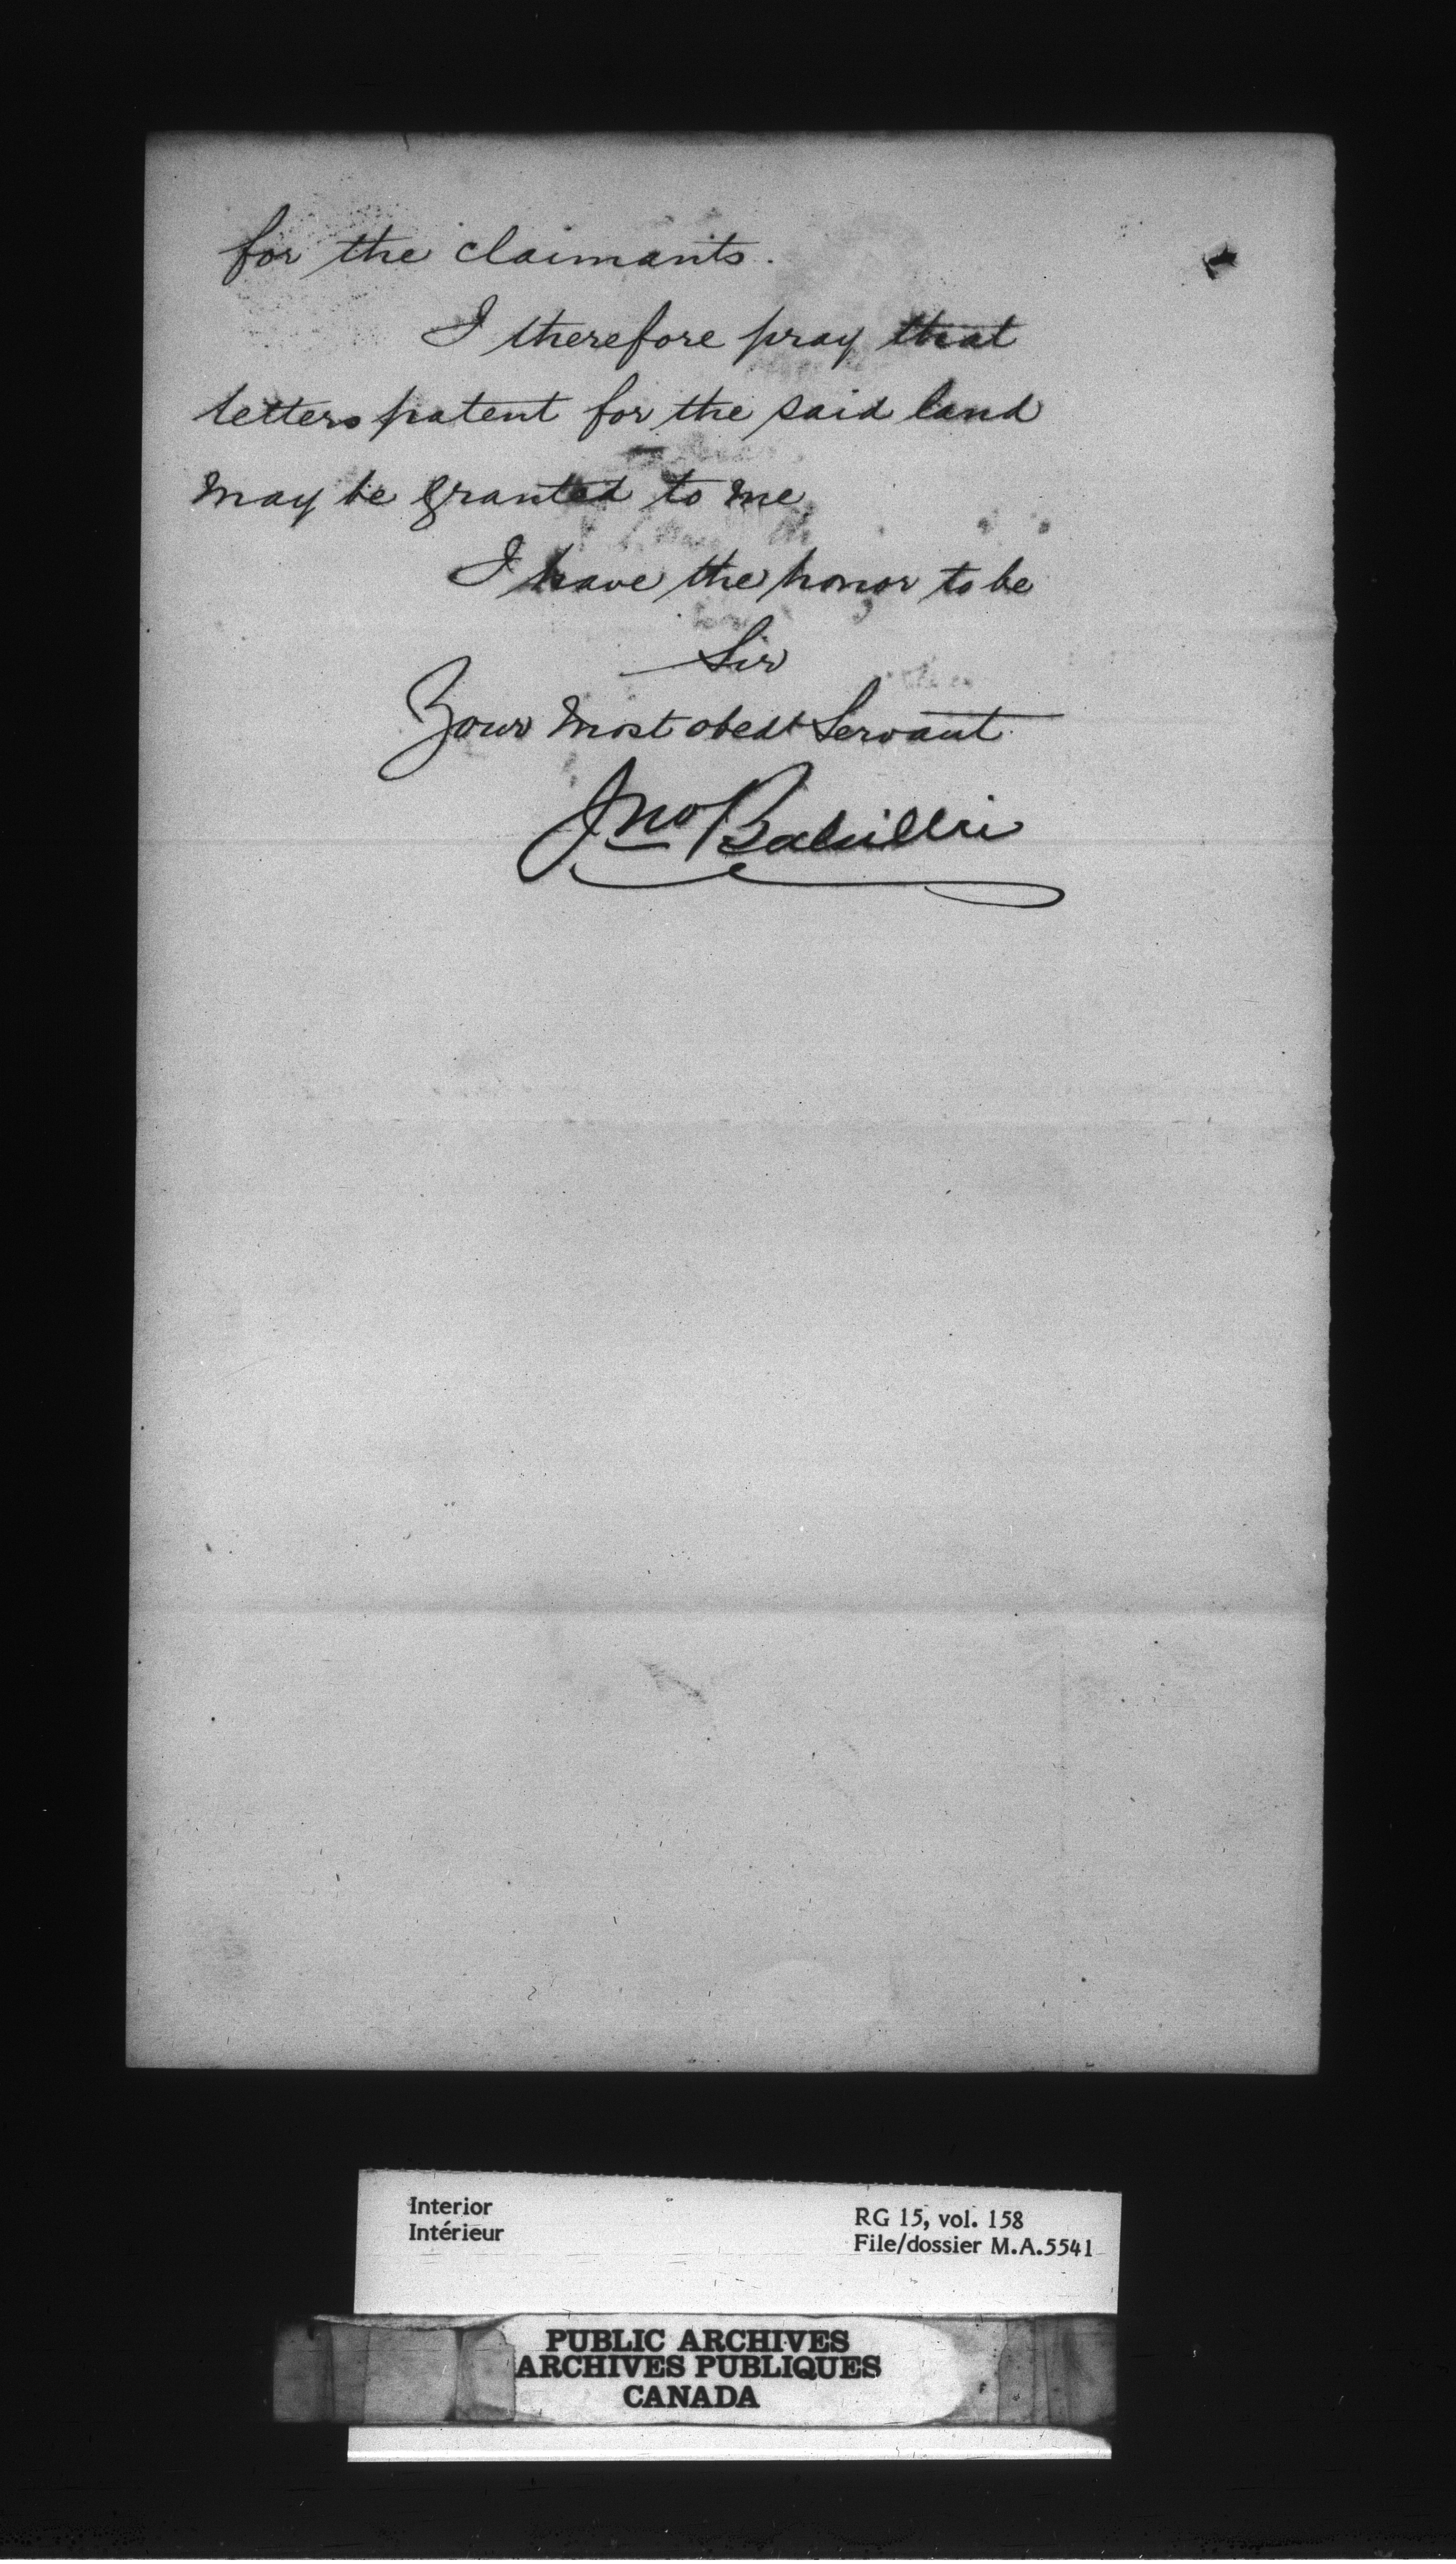 for the claimants.
I therefore pray that
letters patent for the said land
may be granted to me.
I have the honor to be
Sir
Your most obedt Servant
Jno
Interior
Intérieur
RG 15, vol. 158
File/dossier M.A.5541
PUBLIC ARCHIVES
ARCHIVES PUBLIQUES
CANADA